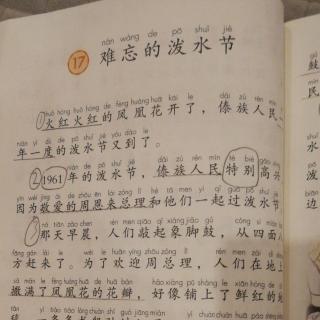 nán wàng de pō shuǐ jié
17 难忘的泼水节
huǒ hóng huǒ hóng de fèng huáng huā kāi le dǎi zú rén mín
①火红火红的凤凰花开了，傣族人民一
nián yí dù de pō shuǐ jié yòu dào le
年一度的泼水节又到了。
nián de pō shuǐ jié dǎi zú rén mín tè bié gāo
②1961年的泼水节，傣族人民特别高兴
yīn wèi jìng ài de zhōu ēn lái zǒng lǐ hé tā men yì qǐ guò pō shuǐ jié
因为敬爱的周恩来总理和他们一起过泼水节
nà tiān zǎo chén rén men qiāo qǐ xiàng jiǎo gǔ cóng sì miàn
③那天早晨，人们敲起象脚鼓，从四面八
fāng gǎn lái le wèi le huān yíng zhōu zǒng lǐ rén men zài dì
方赶来了。为了欢迎周总理，人们在地上
sǎ mǎn le fèng huáng huā de huā bàn hǎo xiàng pū shàng le xiān hóng de
撒满了凤凰花的花瓣，好像铺上了鲜红的地